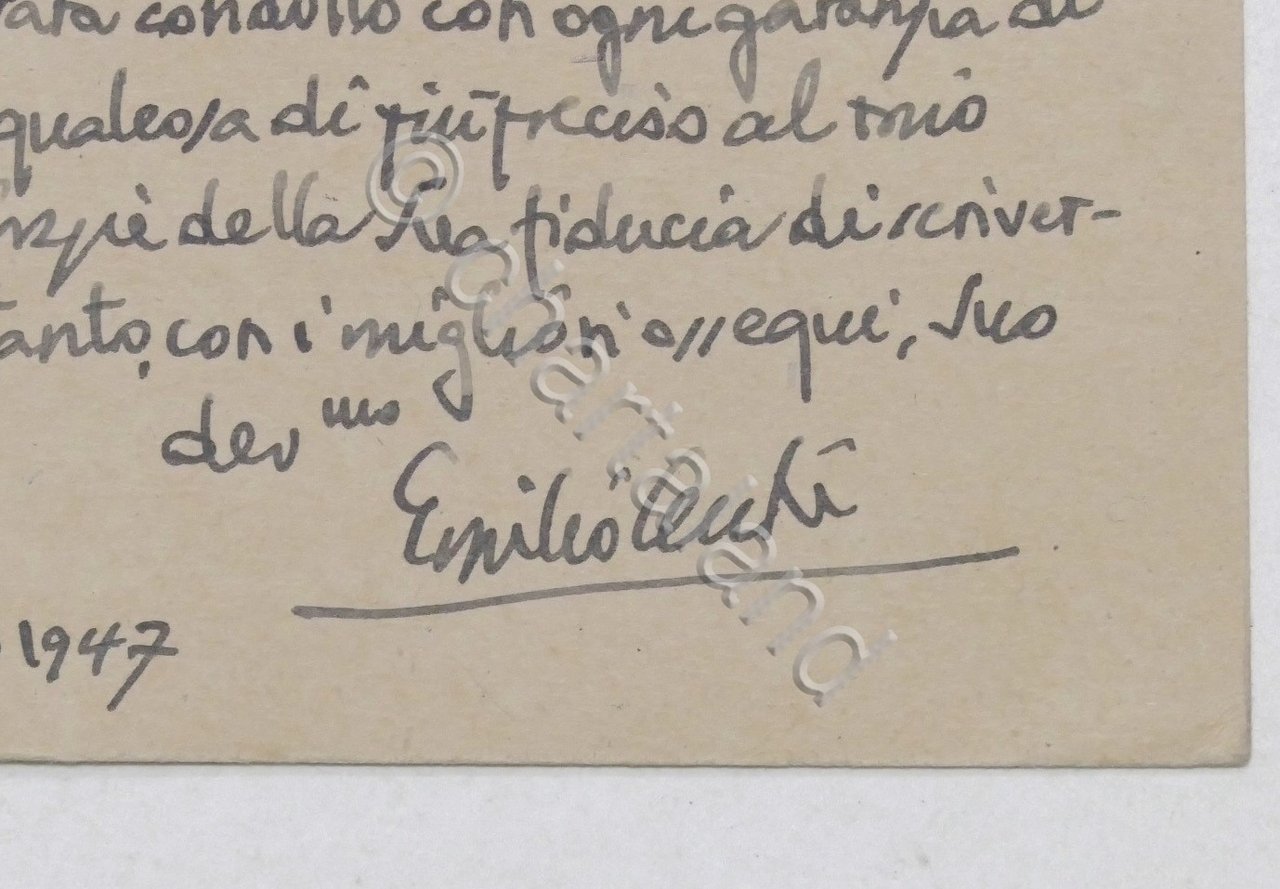 sarà condotto con ogni garanzia di
qualcosa di più preciso al mio
della Sua fiducia di scriver-
tanto, con i migliori ossequi, Suo
dev mo
Emilio Cecchi
1947
© chartaland